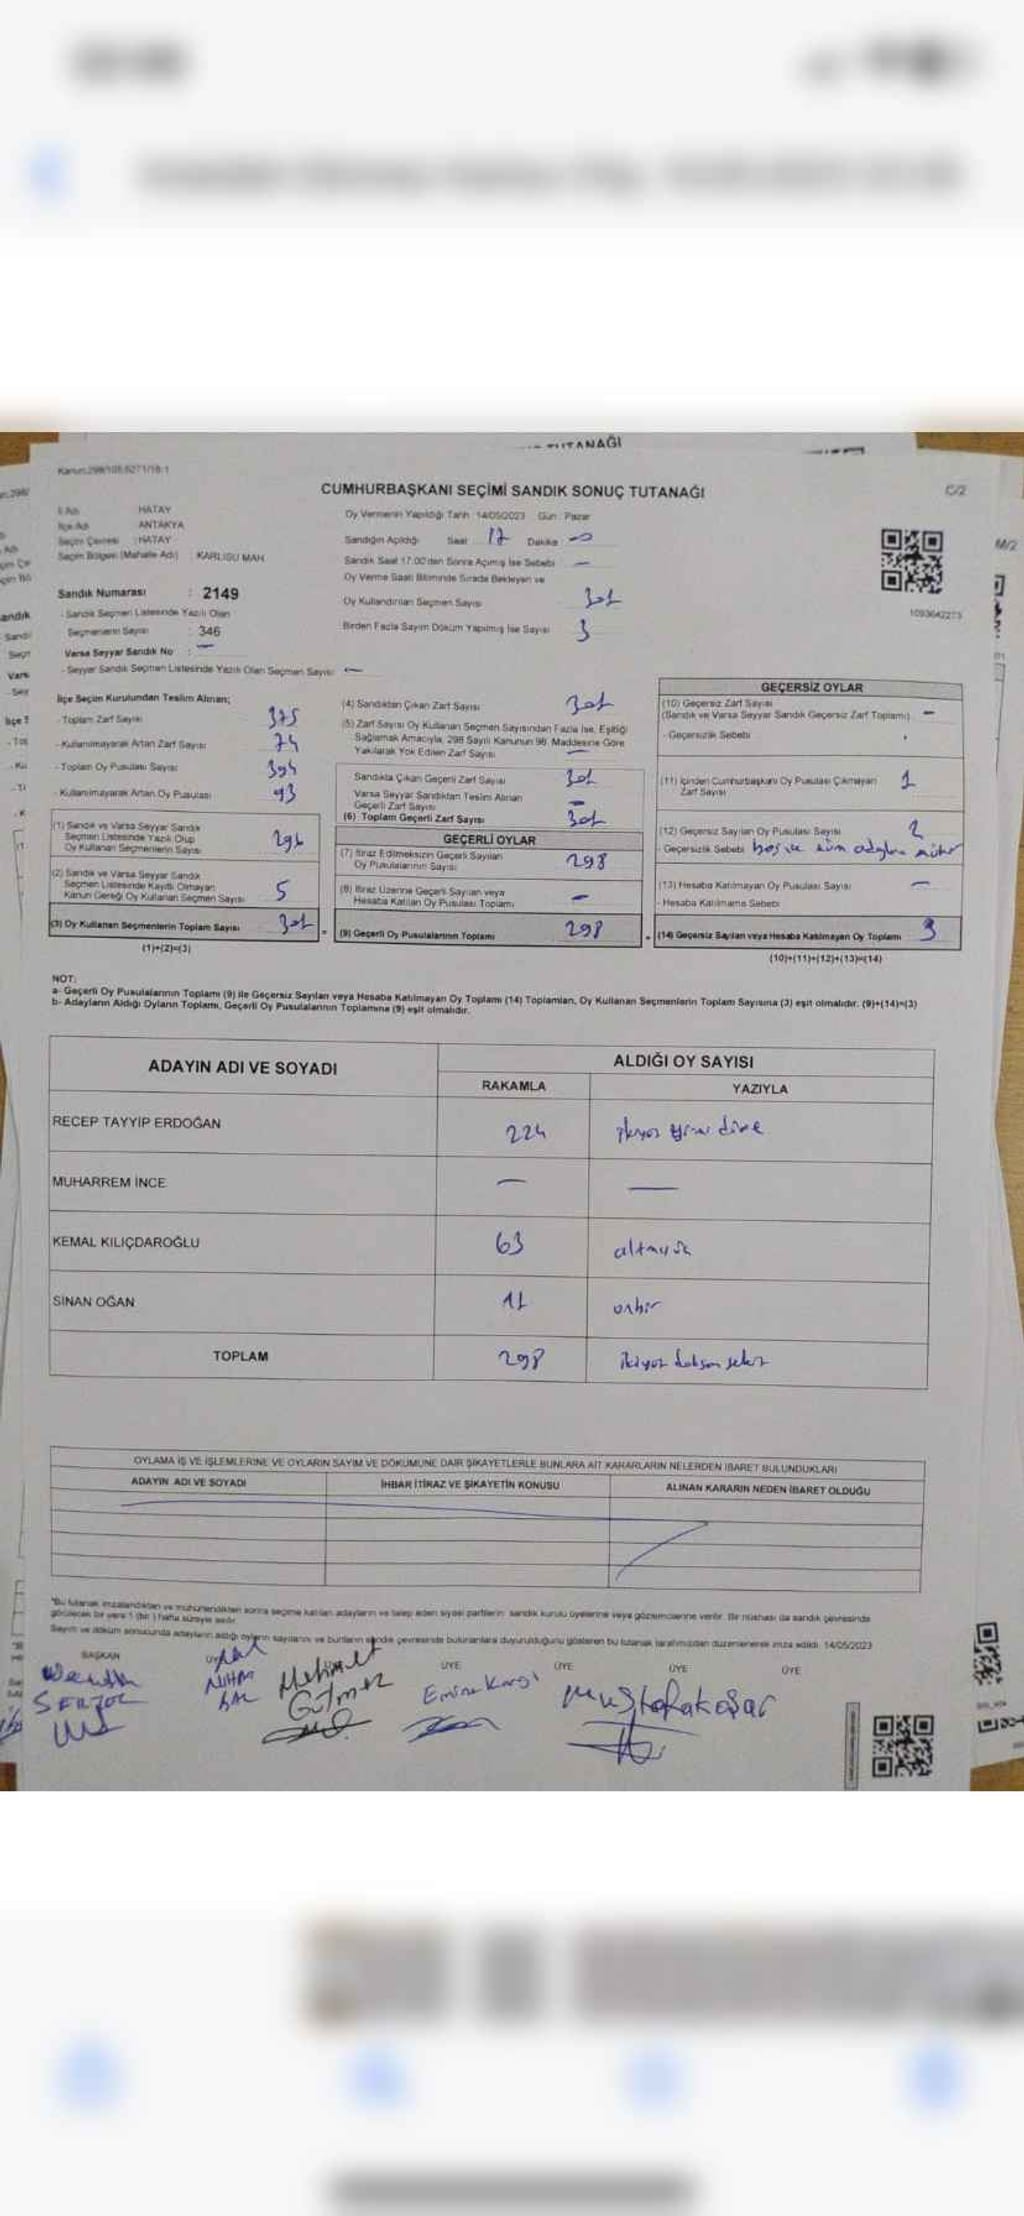 TUTANAĞI
Kanun:298/105;6271/18:1
CUMHURBAŞKANI SEÇİMİ SANDIK SONUÇ TUTANAĞI
C/2
M/2
İl Adı : HATAY
İlçe Adı : ANTAKYA
Seçim Çevresi : HATAY
Seçim Bölgesi (Mahalle Adı) : KARLISU MAH.
Sandık Numarası : 2149
- Sandık Seçmen Listesinde Yazılı Olan
Seçmenlerin Sayısı : 346
Varsa Seyyar Sandık No : —
- Seyyar Sandık Seçmen Listesinde Yazılı Olan Seçmen Sayısı: —
Oy Vermenin Yapıldığı Tarih : 14/05/2023 Gün : Pazar
Sandığın Açıldığı Saat 17 Dakika
Sandık Saat 17.00'den Sonra Açılmış İse Sebebi —
Oy Verme Saati Bitiminde Sırada Bekleyen ve
Oy Kullandırılan Seçmen Sayısı 301
Birden Fazla Sayım Döküm Yapılmış İse Sayısı 3
1093642273
İlçe Seçim Kurulundan Teslim Alınan;
- Toplam Zarf Sayısı 375
- Kullanılmayarak Artan Zarf Sayısı 74
- Toplam Oy Pusulası Sayısı 394
- Kullanılmayarak Artan Oy Pusulası 93
(1) Sandık ve Varsa Seyyar Sandık
Seçmen Listesinde Yazılı Olup
Oy Kullanan Seçmenlerin Sayısı 296
(2) Sandık ve Varsa Seyyar Sandık
Seçmen Listesinde Kayıtlı Olmayan
Kanun Gereği Oy Kullanan Seçmen Sayısı 5
(3) Oy Kullanan Seçmenlerin Toplam Sayısı 301
(1)+(2)=(3)
(4) Sandıktan Çıkan Zarf Sayısı 301
(5) Zarf Sayısı Oy Kullanan Seçmen Sayısından Fazla İse, Eşitliği
Sağlamak Amacıyla, 298 Sayılı Kanunun 98. Maddesine Göre
Yakılarak Yok Edilen Zarf Sayısı —
Sandıkta Çıkan Geçerli Zarf Sayısı 301
Varsa Seyyar Sandıktan Teslim Alınan
Geçerli Zarf Sayısı —
(6) Toplam Geçerli Zarf Sayısı 301
GEÇERLİ OYLAR
(7) İtiraz Edilmeksizin Geçerli Sayılan
Oy Pusulalarının Sayısı 298
(8) İtiraz Üzerine Geçerli Sayılan veya
Hesaba Katılan Oy Pusulası Toplamı —
(9) Geçerli Oy Pusulalarının Toplamı 298
GEÇERSİZ OYLAR
(10) Geçersiz Zarf Sayısı
(Sandık ve Varsa Seyyar Sandık Geçersiz Zarf Toplamı) —
- Geçersizlik Sebebi
(11) İçinden Cumhurbaşkanı Oy Pusulası Çıkmayan
Zarf Sayısı 1
(12) Geçersiz Sayılan Oy Pusulası Sayısı 2
- Geçersizlik Sebebi boş ve tüm adaylara mühür
(13) Hesaba Katılmayan Oy Pusulası Sayısı —
- Hesaba Katılmama Sebebi
(14) Geçersiz Sayılan veya Hesaba Katılmayan Oy Toplamı 3
(10)+(11)+(12)+(13)=(14)
NOT:
a- Geçerli Oy Pusulalarının Toplamı (9) ile Geçersiz Sayılan veya Hesaba Katılmayan Oy Toplamı (14) Toplamları, Oy Kullanan Seçmenlerin Toplam Sayısına (3) eşit olmalıdır. (9)+(14)=(3)
b- Adayların Aldığı Oyların Toplamı, Geçerli Oy Pusulalarının Toplamına (9) eşit olmalıdır.
ADAYIN ADI VE SOYADI
ALDIĞI OY SAYISI
RAKAMLA YAZIYLA
RECEP TAYYİP ERDOĞAN 224
MUHARREM İNCE — —
KEMAL KILIÇDAROĞLU 63
SİNAN OĞAN 11 onbir
TOPLAM 298 ikiyüz doksan sekiz
OYLAMA İŞ VE İŞLEMLERİNE VE OYLARIN SAYIM VE DÖKÜMÜNE DAİR ŞİKAYETLERLE BUNLARA AİT KARARLARIN NELERDEN İBARET BULUNDUKLARI
ADAYIN ADI VE SOYADI
İHBAR İTİRAZ VE ŞİKAYETİN KONUSU
ALINAN KARARIN NEDEN İBARET OLDUĞU
*Bu tutanak imzalandıktan ve mühürlendikten sonra seçime katılan adayların ve talep eden siyasi partilerin sandık kurulu üyelerine veya gözlemcilerine verilir. Bir nüshası da sandık çevresinde
görülecek bir yere 1 (bir) hafta süreyle asılır.
Sayım ve döküm sonucunda adayların aldığı oyların sayılarını ve bunların sandık çevresinde bulunanlara duyurulduğunu gösteren bu tutanak tarafımızdan düzenlenerek imza edildi. 14/05/2023
BAŞKAN ÜYE ÜYE ÜYE ÜYE
SERZOL
Mehmet
Emine
Mustafa Koşar